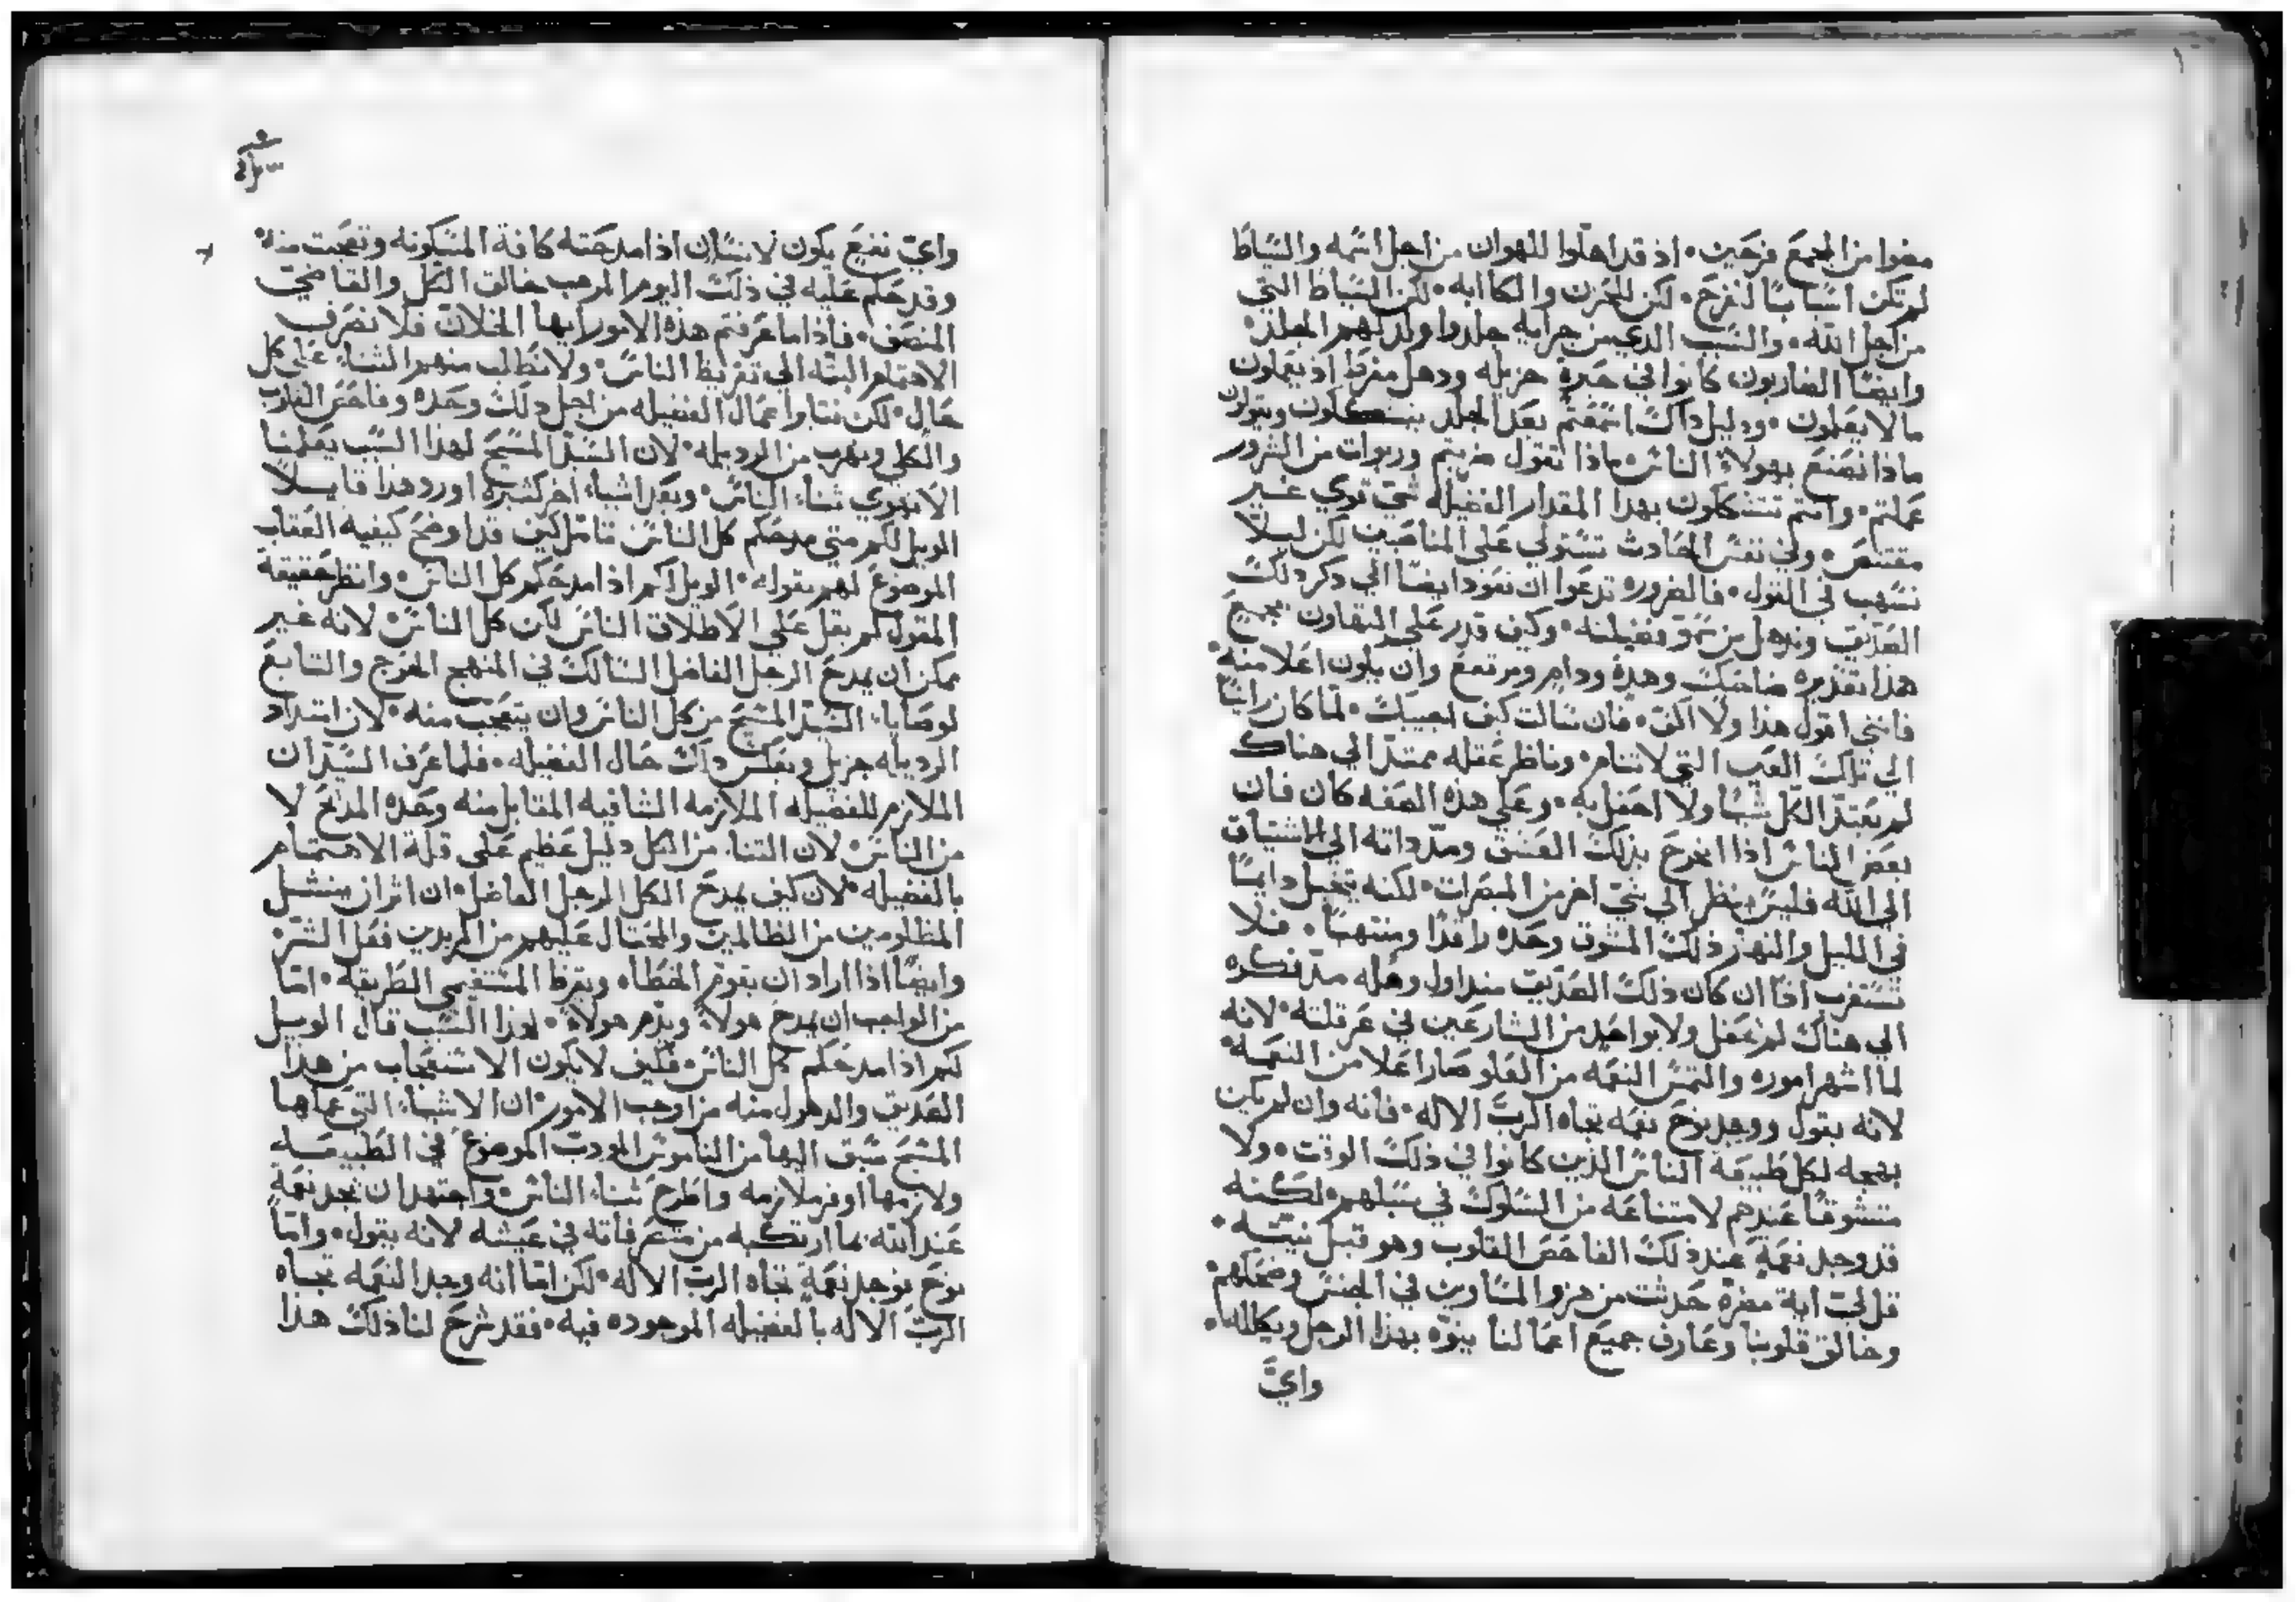 مضوا من المجمع فرحين • اذ قد اهلوا للهوان من اجل اسمه والسياط
لم تكن اسبابًا لفرح • لكن للحزن والكاابه • لكن السياط التي
من اجل الله • والسبب الدي من جرايه جلدوا ولد لهم الجلد •
وايضًا الضاربون كانوا في حيرة جزيله ودهل مفرط اذ يعملون
ما لا يعلمون • ودليل داك اسمعهم بعد الجلد يتشكلون ويقولون
ماذا نصنع بهولاء الناس ماذا تقول ضربتم وربوات من الشرور
عملتم • وانتم تتشكلون بهدا المقدار الفضيله شي قوي غير
مقتنص • وفي نفس الحادث تستولي على المناصبين لكن ليلا
نسهب في القول • فالضروره تدعوا ان نعود ايضًا الي دكر دلك
الصديق وندهل من سمو فضيلته • وكيف قدر على التهاون بجميع
هدا تقديره ضاحك وهزء وذام ومرتفع وان يكون اعلا منه •
فانني اقول هذا ولا اكف • فان سالت كيف اجيبك • لما كان رانيًا
الي تلك العين التي لا تنام • وناظر عقله ممتدًا الي هناك
لم يعتد الكل شيًا ولا احفل به • وعلى هذه الصفه كان فان
بعض الناس اذا انجرح بذلك العشق ومد داته الي الاشتياق
الي الله فليس ينظر الي شي اخر من المبصرات • لكنه يتخيل دايمًا
في الليل والنهار ذلك المشوق وحده راقدًا ومنتبهًا • فلا
تستغرب اذا ان كان ذلك الصديق منذ اول وهله مد فكره
الي هناك لم يحفل ولا بواحد من الشارعين في عرقلته • لانه
لما اشهر اموره والتمس النعمه من العلو صار اعلا من النعمه •
لانه يقول ووجد نوح نعمه تجاه الرب الاله • فانه وان لم يكن
بهجه لكل طبيعة الناس الذين كانوا في ذلك الوقت • ولا
متشوقًا عندهم لامتناعه من السلوك في سبلهم • لكنه
قد وجد نعمة عند ذلك الفاحص القلوب وهو قبل نيته •
قل لي اية مضرة حدثت من هزو المساوين في الجنس وضحكهم •
وخالق قلوبنا وعارف جميع اعمالنا ينوه بهذا الرجل ويكلله •
واي
واي نفع يكون لانسان اذا مدحته كافة المسكونه وتعجبت منه •
وقد حكم عليه في ذلك اليوم المرهب خالق الكل والقاضي
المنصف • فاذا ما عرفتم هذه الامور ايها الخلان فلا نصرف
الاهتمام البته الي تقريظ الناس • ولا نطلب منهم الثناء على كل
حال • لكن نتلوا اعمال الفضيله من اجل دلك وحده وفاحص القلوب
والكلي ونهرب من الرديله • لان السيد المسيح لهذا السبب يعلمنا
الا نهوي ثناء الناس • وبعد اشياء اخر كثيرة اورد هذا قايلاً
الويل لكم متى مدحكم كل الناس فامل كيف قد اوضح كيفيه العقاب
الموضوع لهم بقوله • الويل لكم اذا مدحكم كل الناس • وانظر حقيقة
المقول لم يقل على الاطلاق الناس لكن كل الناس لانه غير
ممكن ان يمدح الرجل الفاضل السالك في المنهج الحرج والتابع
لوصايا السيد المسيح من كل الناس وان يتعجب منه • لان امتداد
الرديله جزيل وبعكس داك حال الفضيله • فلما عرف السيد ان
الملازم للفضيله الملازمه الشافيه المتقابل منه وحده المديح لا
من الناس لان الثناء من الكل دليل عظيم على قلة الاهتمام
بالفضيله • لان كيف يمدح الكل الرجل الفاضل • ان اثر ان ينتشل
المظلومين من الظالمين والمحتال عليهم من المريدين فعل الشر •
وايضًا اذا اراد ان يقوم الخطاه ويقرظ المستقيمي الطريقه • اما
من الواجب ان يمدح هولاء ويذم هولاء • لهذا السبب قال الويل
لكم اذا مدحكم كل الناس • فكيف لا يكون الاستعجاب من هذا
الصديق والدهول منه من اوجب الامور • ان الاشياء التي علمها
المسيح سبق اليها من الناموس المودب الموضوع في الطبيعه
ولازمها اوفر ملازمه واطرح ثناء الناس • واجتهد ان يجد نعمة
عند الله بما ارتكبه من متصرفاته في عيشه لانه يقول • واما
نوح نوجد نعمة تجاه الرب الاله • لكن اما انه وجد النعمه تجاه
الرب الاله بالفضيله الموجوده فيه • فقد شرح لنا ذلك هذا